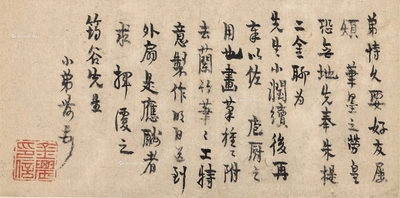 弟恃久要好友屢
煩華墨之勞皇
恐無地先奉朱提
二金聊為
先生小潤續後再
奉以佐庖厨之
用也畫菓種種附
去蘭竹華華工特
意製作明日送到
外扇是應酬者
求揮瀀之
筠谷先生
小弟農頓首